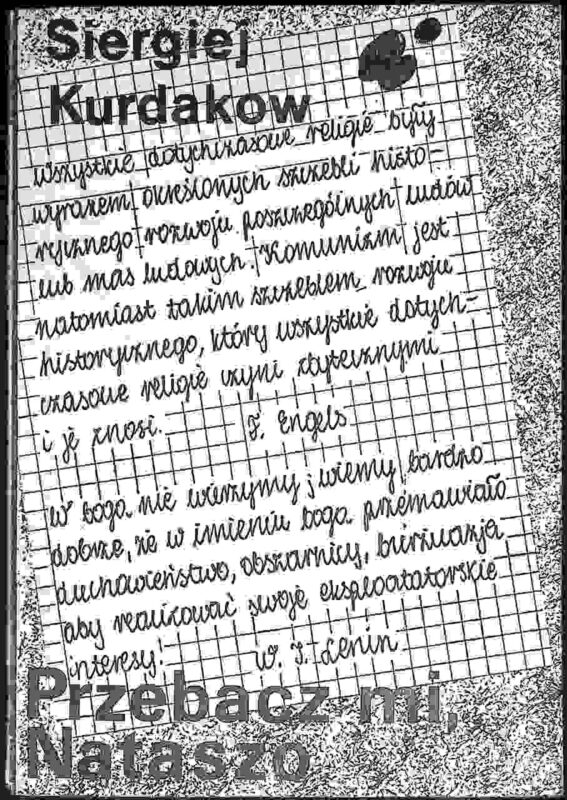 Siergiej
Kurdakow
wszystkie dotychczasowe religie były
wyrazem określonych szczebli histo-
rycznego rozwoju poszczególnych ludów
lub mas ludowych. Komunizm jest
natomiast takim szczeblem rozwoju
historycznego, który wszystkie dotych-
czasowe religie czyni zbytecznymi
i je znosi.
F. Engels
W boga nie wierzymy; wiemy bardzo
dobrze, że w imieniu boga przemawiało
duchowieństwo, obszarnicy, burżuazja
aby realizować swoje eksploatatorskie
interesy!
W. I. Lenin
Przebacz mi,
Nataszo